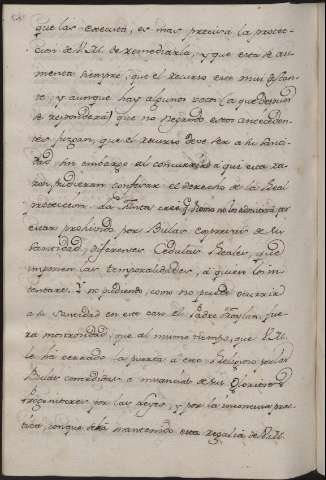 que las executa, es mas precisa la protec-
cion de V. M. de remediarla, y que esta se au-
menta siempre, que el recurso este mui distan-
te, y aunque hay algunos votos (a que despues
se respondera) que no negando estos anteceden-
tes juzgan, que el recurso deve ser a su Santi-
dad sin embargo al concurrir a que esta ra-
zon, pudieran confesar el derecho de la Real
proteccion. La Junta cree q. Roma no los admitirá, por
estar prohivido por Bulas expresas de su
Santidad, diferentes Cedulas Reales, que
imponen las temporalidades, a quien lo in-
tentare. Y no pudiendo, como no puede ocurrir
a su Santidad en este caso el Padre fue-
ra monstruosidad, que al mismo tiempo, que V. M.
le ha cerrado la puerta a este Religioso por las
Bulas concedidas a instancias de sus Gloriosos
Progenitores por las leyes, y por la inconcusa prac-
tica, con que se ha mantenido esta regalia de V. M.